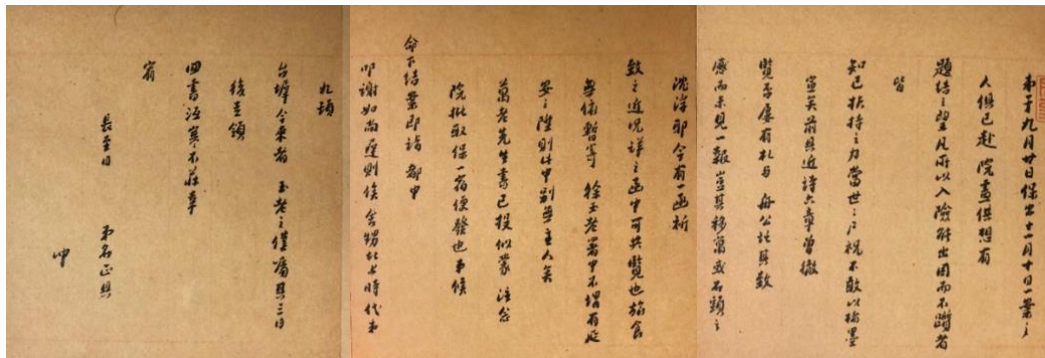 弟于九月廿日保出十一月十日一業之
人俱已赴 院畫供想有
題結之望凡所以入險能出困而不躓者
皆
知己扶持之力當世之戶祝不敢以楮墨
宣矣前具近詩六章曾徹
覽否屢有札与 舟公託具致
感而未見一報豈其移寓或石頭之
沈浮耶今有一函祈
致之近況詳之函中可共覽也旅食
無依暫寄 徐玉老署中不堪有延
安之陞則此中別無主人矣
萬老先生書已投似蒙 注念
院批取保一宿便發也弟候
命下結業即詣 都中
叩謝如尚遲則俟 舍甥北上時代弟
九頓
台墀今來者 玉老之僕當具三日
後走領
回書沍寒不莊幸
宥
長至日 弟名正具
冲